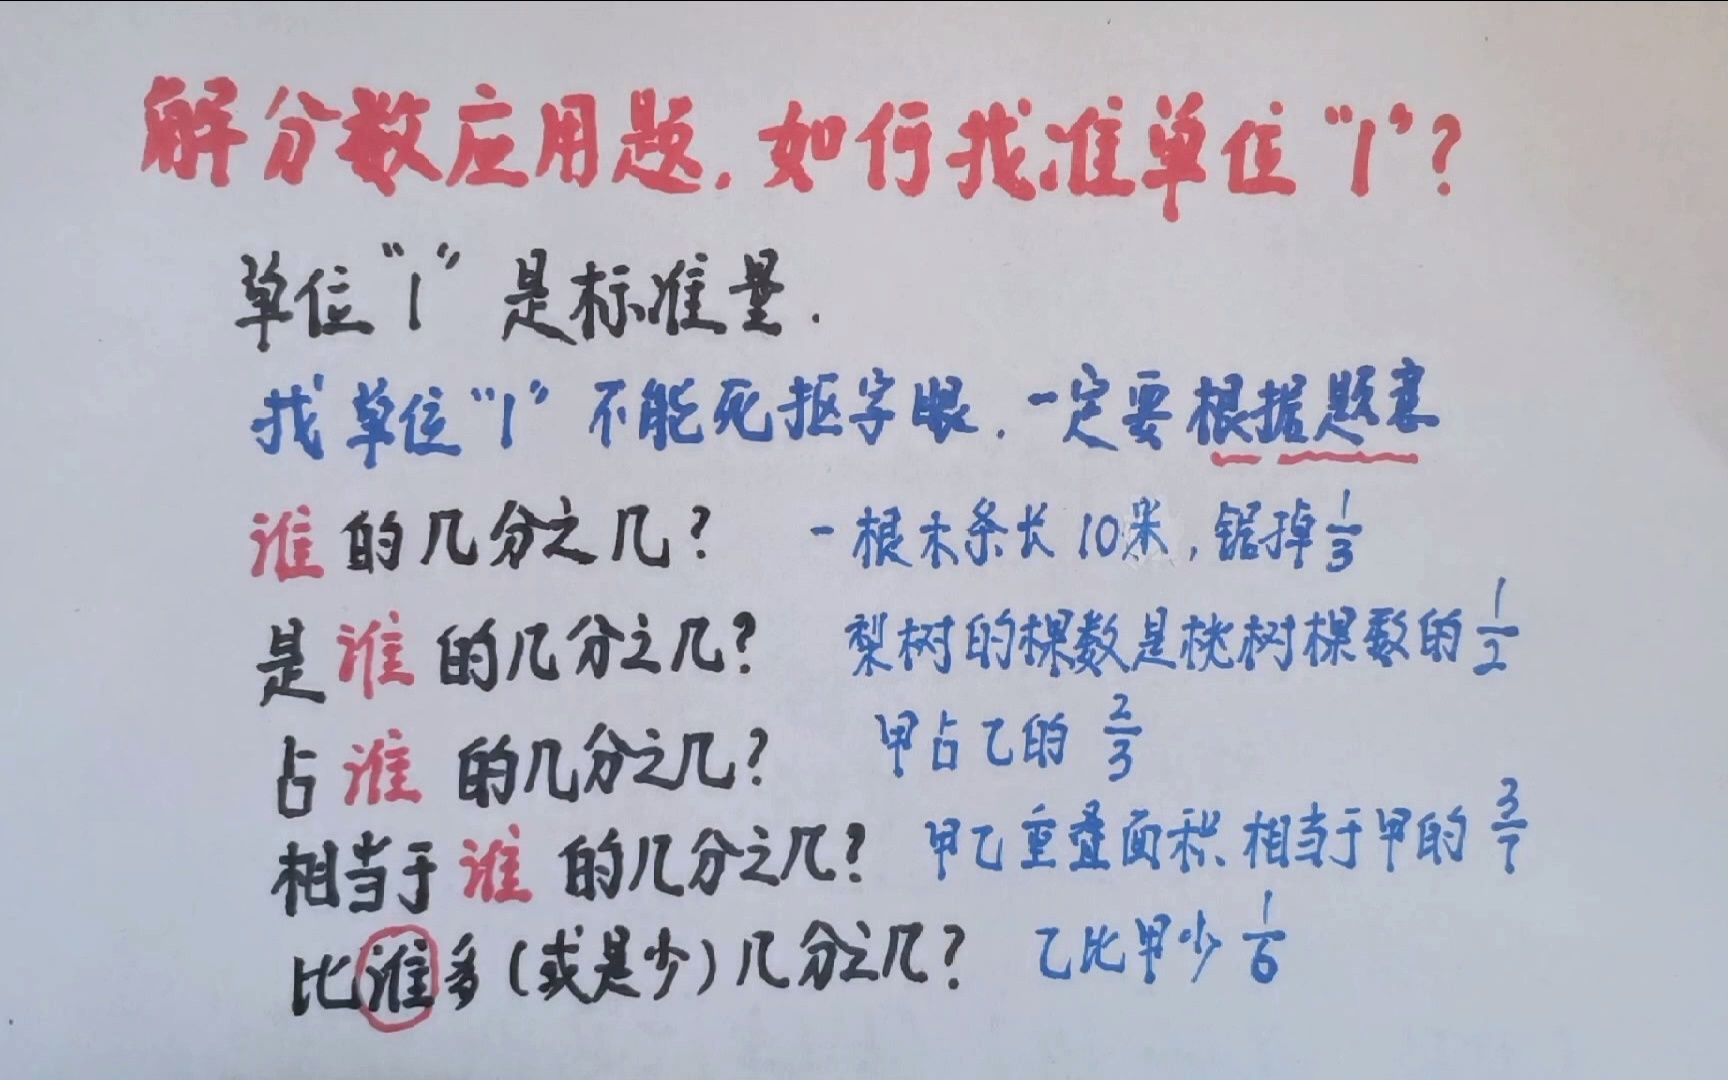 解分数应用题，如何找准单位“1”？
单位“1”是标准量.
找单位“1”不能死抠字眼，一定要根据题意
谁的几分之几？ 一根木条长10米，锯掉1/3
是谁的几分之几？ 梨树的棵数是桃树棵数的1/2
占谁的几分之几？ 甲占乙的2/3
相当于谁的几分之几？ 甲乙重叠面积相当于甲的3/7
比谁多（或是少）几分之几？ 乙比甲少1/6